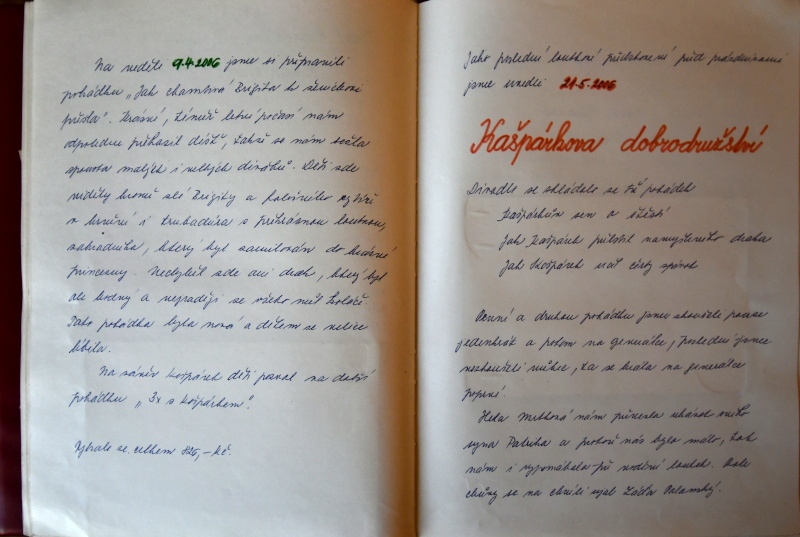 Na neděli 9.4.2006 jsme si připravili
pohádku „Jak chamtivá Brigita k zeměkoni
přišla". Krásné, téměř letní počasí nám
odpoledne překazil déšť, takže se nám sešla
spousta malých i velkých diváků. Děti zde
viděly kromě zlé Brigity a
v brnění i trubadúra s příhlasnou loutnou,
zahradníka, který byl zamilován do krásné
princezny. Nechyběl zde ani drak, který byl
ale hodný a nejraději ze všeho měl koláče.
Tato pohádka byla nová a dětem se velice
líbila.
Na závěr Kašpárek děti pozval na další
pohádku „3x s Kašpárkem".
Vybralo se celkem ,- kč.
Jako poslední loutkové představení před prázdninami
jsme uvedli 21.5.2006
Kašpárkova dobrodružství
Divadlo se skládalo ze tří pohádek
Kašpárkův sen o štěstí
Jak Kašpárek přelstil namyšleného draka
Jak Kašpárek učil čerty zpívat
První a druhou pohádku jsme zkoušeli pouze
jedenkrát a potom na generálce, poslední jsme
nezkoušeli vůbec, ta se hrála na generálce
poprvé.
Hela nám přivezla ukázat svého
syna Patrika a protože nás bylo málo, tak
nám i vypomáhala při vodění loutek. Role
se na chvíli ujal